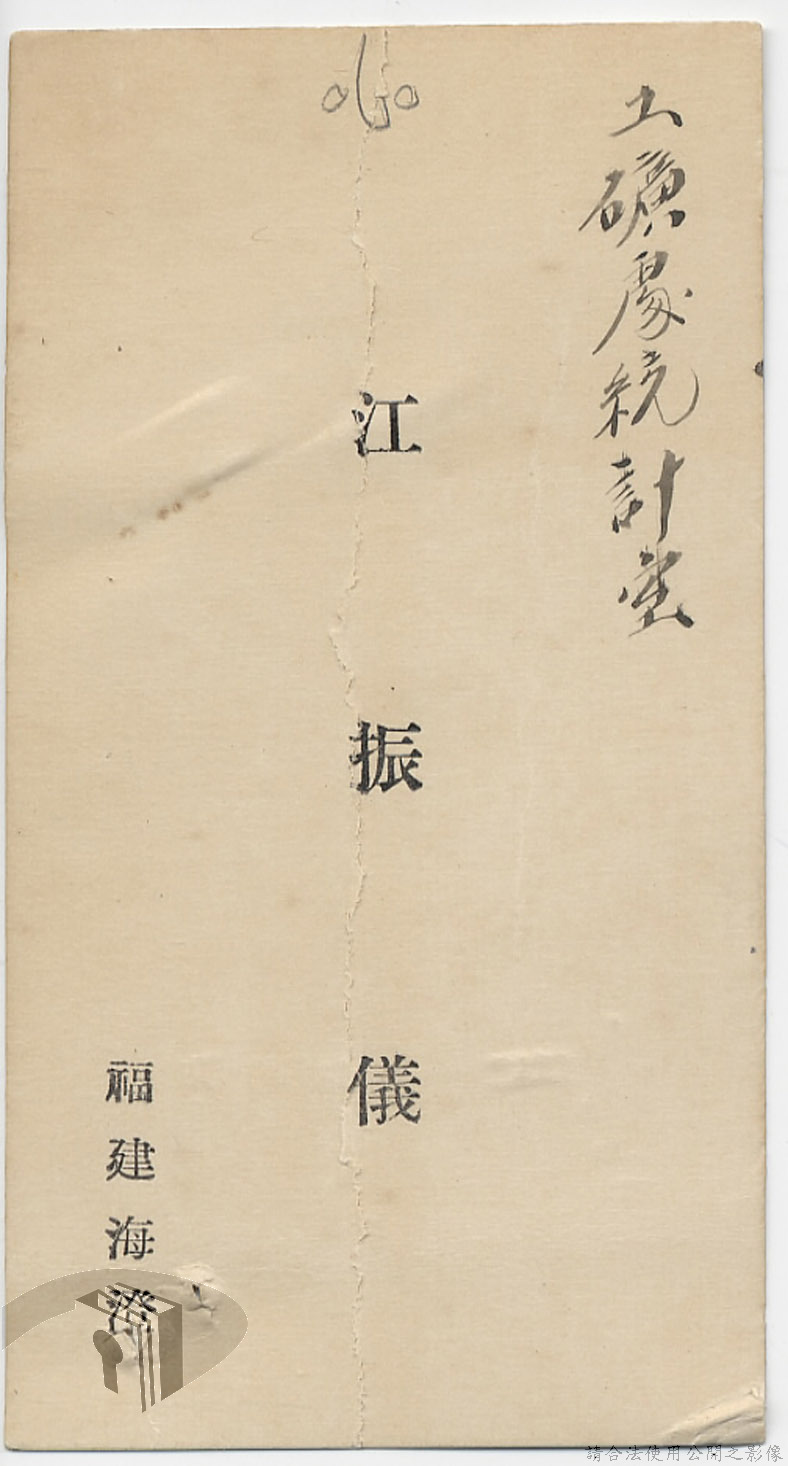 工礦處統計室
江振儀
福建海澄
請合法使用公開之影像